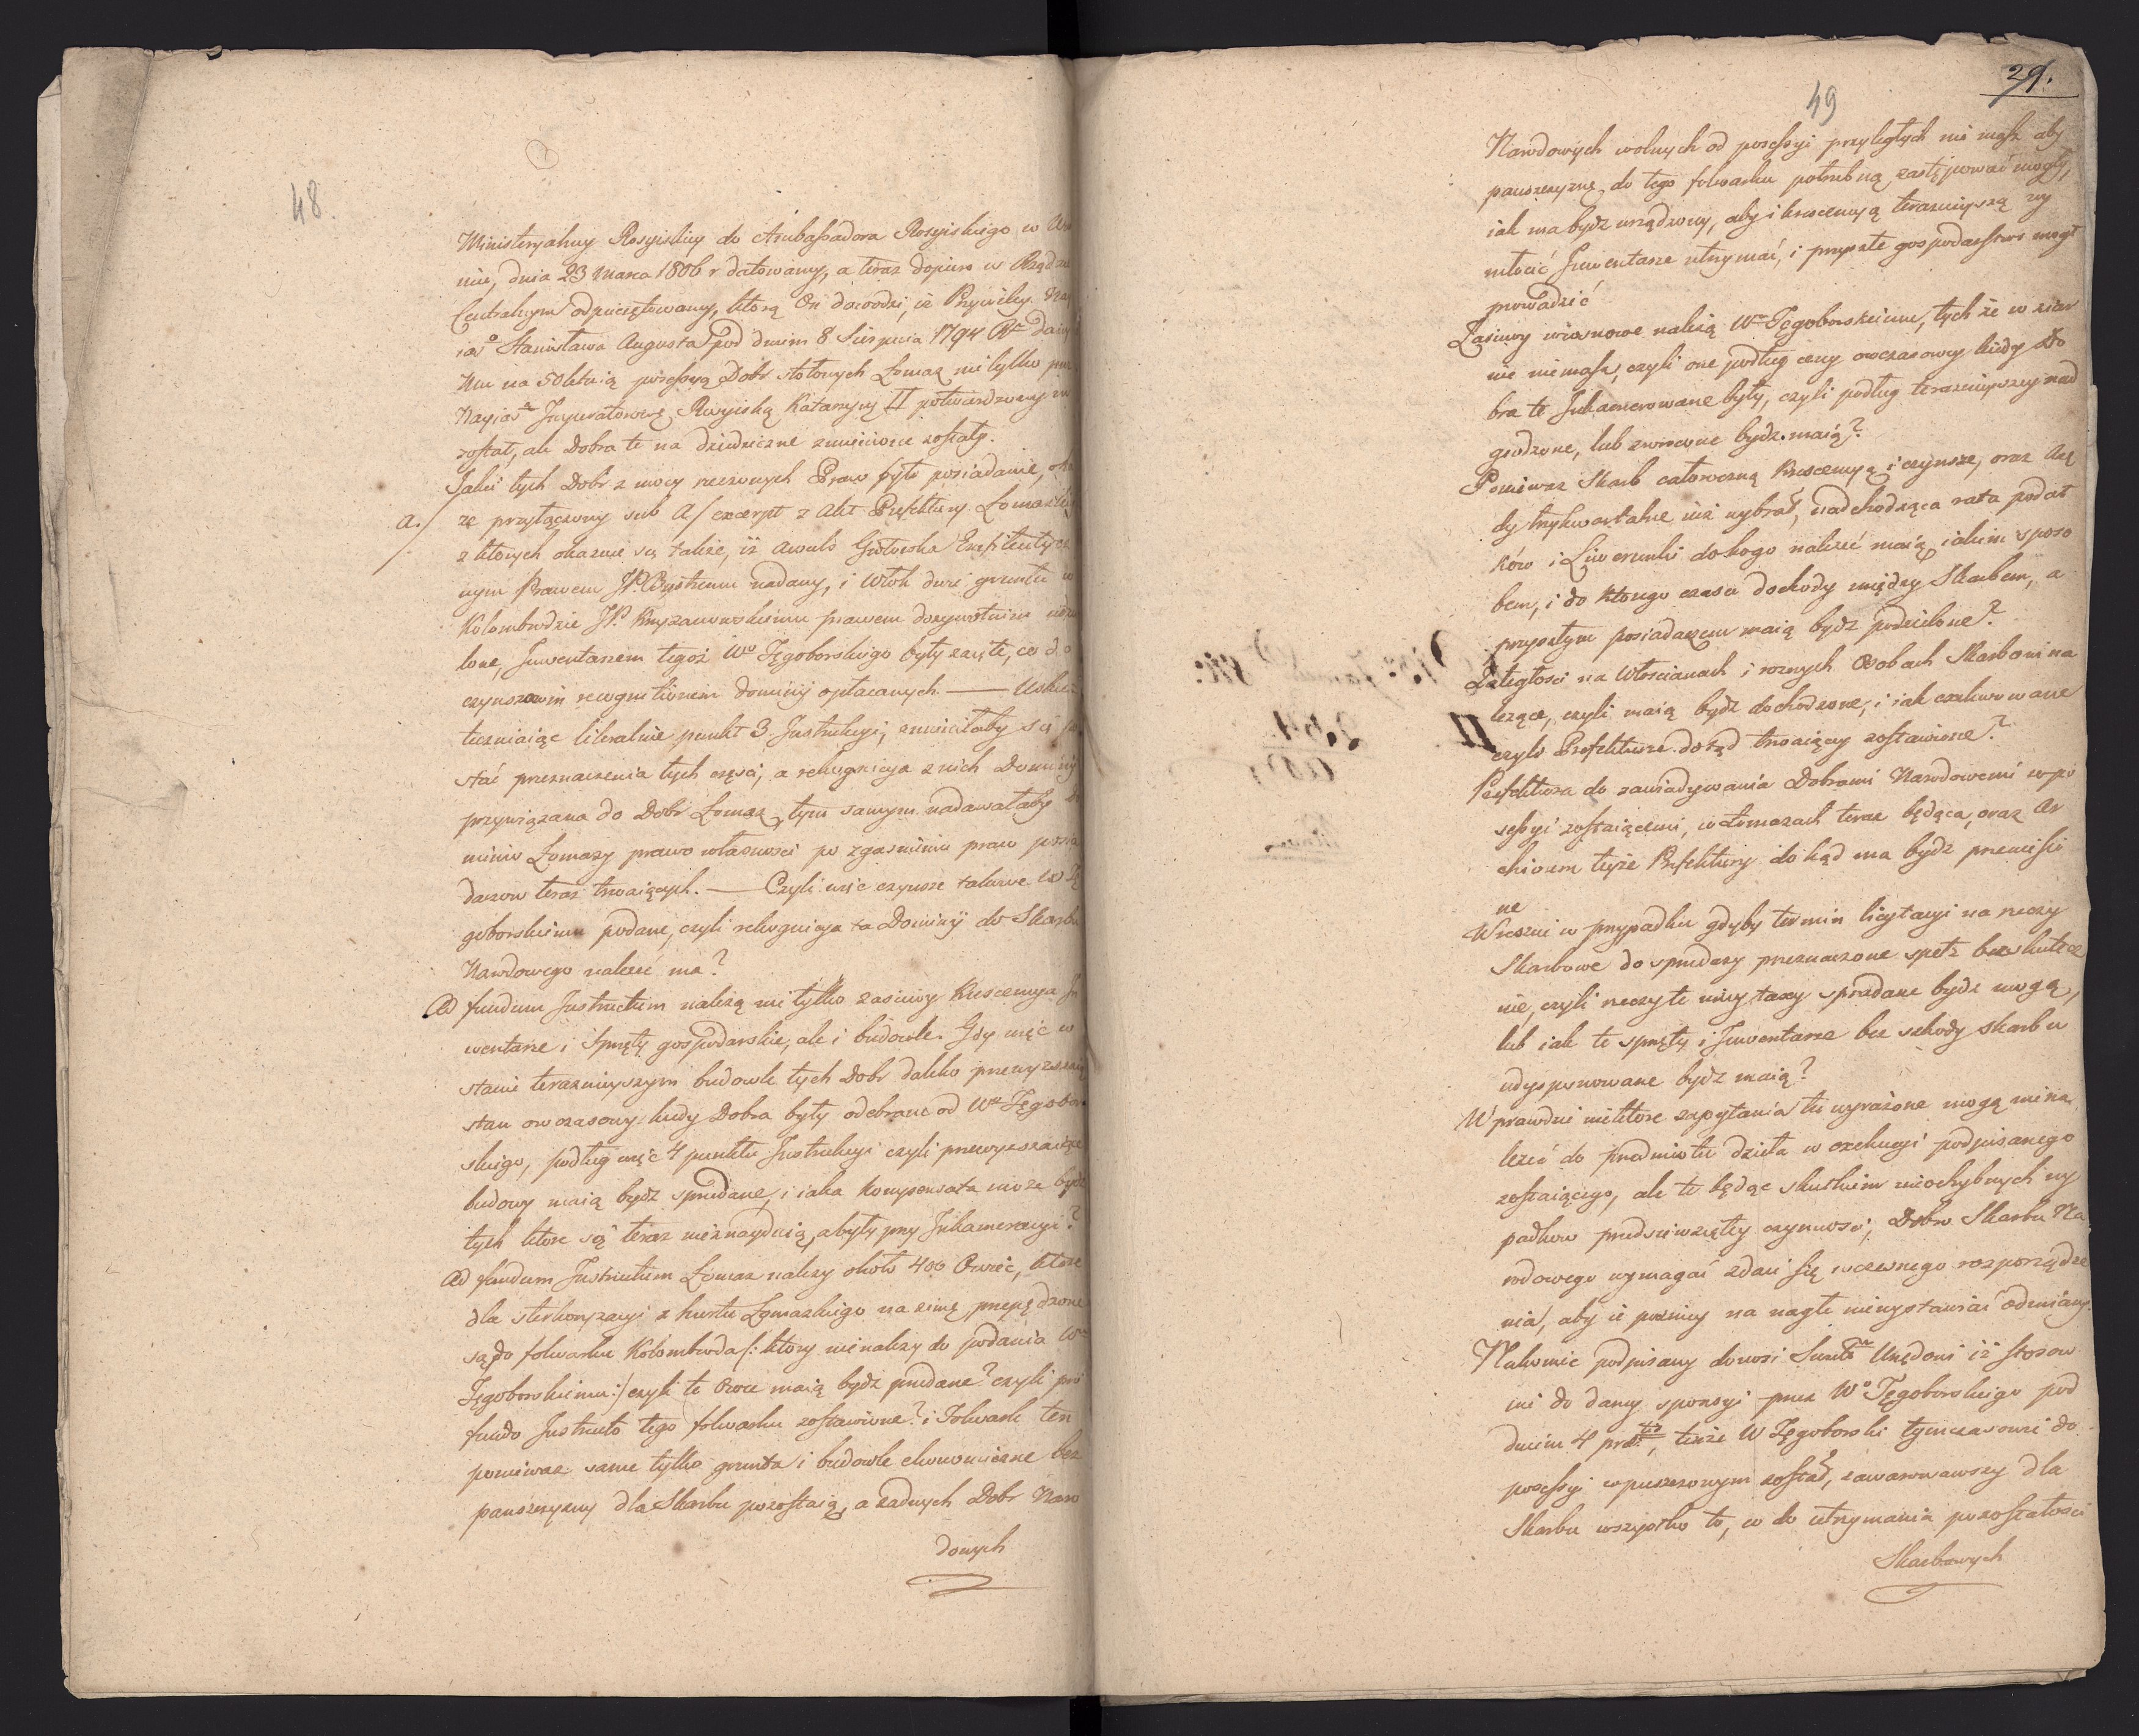 48.
Ministeryalney Rosyiskiey do Ambassadora Rosyiskiego w
niu, dnia 23 Marca 1806 r datowaney, a teraz dopiero w Rządzie
Centralnym odpieczętowaney, którą On dowodzi, iż Przywiley
ias⁰ Stanisława Augusta pod dniem 8 Sierpnia 1794 Rᵘ dany
Mu na 50 letnią possessyą Dobr stołowych Łomaz nie tylko przez
Nayias Imperatorowę Rosyiską Katarzynę II potwierdzony
został, ale Dobra te na dziedziczne zmienione zostały.
Jakie tych Dobr z mocy rzeczonych Praw było posiadanie,
a./ ze przyłączony sub A/ excerpt z Akt Prefektury Łomaskiey
z których okazuie się także, iż Awuls Grotowka Emfiteutycz
nym Prawem JP. Bystremu nadany, i Włok dwie gruntu w
Kolembrodzie JP. Kryzanowskiemu prawem dożywotnim
lone, Inwentarzem tegoż Wo Tęgoborskiego były zaięte, co do
czynszowin recognitionem dominij opłacanych —
teczniaiąc literalnie punkt 3. Instrukcyi, zmieniłaby się
stać przeznaczenia tych części, a rekognicya z nich Dominij
przywiązana do Dobr Łomaz, tym samym nadawałaby
minio Łomazy prawo własności po zgaśnieniu praw posia
daczow teraz trwaiących. — Czyli więc czynsze takowe W Tę
goborskiemu podane, czyli rekognicya ta Dominij do Skarbu
Narodowego należeć ma?
Ad fundum Instructum należą nie tylko zasiewy Krescencya In
wentarze i Sprzęty gospodarskie, ale i budowle. Gdy więc w
stanie teraznieyszym budowle tych Dobr daleko przewyższaią
stan owczasowy kiedy Dobra były odebrane od Wo Tęgobor
skiego, podług więc 4 punktu Instrukcyi czyli przewyższaiące
budowy maią bydź sprzedane, i iaka kompensata może bydź
tych które się teraz nieznayduią, a były przy Inkameracyi?
Ad fundum Instructum Łomaz należy około 400 Owiec, które
dla sterkoryzacyi z hurtu Łomazkiego na zimę przepędzone
są do folwarku Kolembroda /: który nienależy do podania Wo
Tęgoborskiemu :/ czyli te Owce maią bydź przedane? czyli pro
fundo Instructo tego folwarku zostawione? i Folwark ten
ponieważ same tylko grunta i budowle ekonomiczne bez
panszczyzny dla Skarbu pozostaią, a żadnych Dobr Naro
dowych
29.
49
Narodowych wolnych od possessyi przyległych nie masz aby
panszczyznę do tego folwarku potrzebną zastępować mogły,
iak ma bydź urządzony, aby i krescencyą teraznieyszą wy
młocić, Inwentarze utrzymać, i przyszłe gospodarstwo mogł
prowadzić
Zasiewy wiosnowe należą Wo Tęgoborskiemu, tych że w ziar
nie niemasz, czyli one podług ceny owczasowey kiedy Do
bra te Inkamerowane były, czyli podług teraznieyszey nad
grodzone, lub zwrocone bydź maią?
Ponieważ Skarb całoroczną Krescencyą i czynsze, oraz Arę
dy trzykwartalne iuż wybrał, nadchodząca rata podat
ków i Liwerunki dokogo należeć maią iakim sposo
bem, i do którego czasu dochody między Skarbem, a
przyszłym posiadaczem maią bydź podzielone?
Zaległości na Włościanach i roznych Osobach Skarbowi na
leżące, czyli maią bydź dochodzone, i iak exekwowane
czyli Prefekturze dotąd trwaiącey zostawione?
Prefektura do zawiadywania Dobrami Narodowemi w po
sessyi zostaiącemi, w Łomazach teraz będąca, oraz Ar
chiwum teyże Prefektury dokąd ma bydź przeniesio
ne
Wreszcie w przypadku gdyby termin licytacyi na rzeczy
Skarbowe do sprzedaży przeznaczone spełz bezskutecz
nie, czyli rzeczy te niżey taxy sprzedane bydź mogą,
lub iak te sprzęty i Inwentarze bez szkody Skarbu
udysponowane bydź maią?
Wprawdzie niektóre zapytania tu wyrażone mogą niena
leżeć do przedmiotu dzieła w exekucyi podpisanego
zostaiącego, ale te będąc skutkiem niochybnych wy
padkow przedsiewziętey czynności, Dobro Skarbu Na
rodowego wymagać zdaie się wczesnego rozporządze
nia, aby ie pozniey na nagłe niewystawiać odmiany.
Nakoniec podpisany donosi Urzędowi iż stosow
nie do daney sponsyi przez Wo Tęgoborskiego pod
dniem 4 , tenże W Tęgoborski tymczasowie do
possessyi wpuszczonym został, zawarowawszy dla
Skarbu wszystko to, co do utrzymania pozostałości
Skarbowych